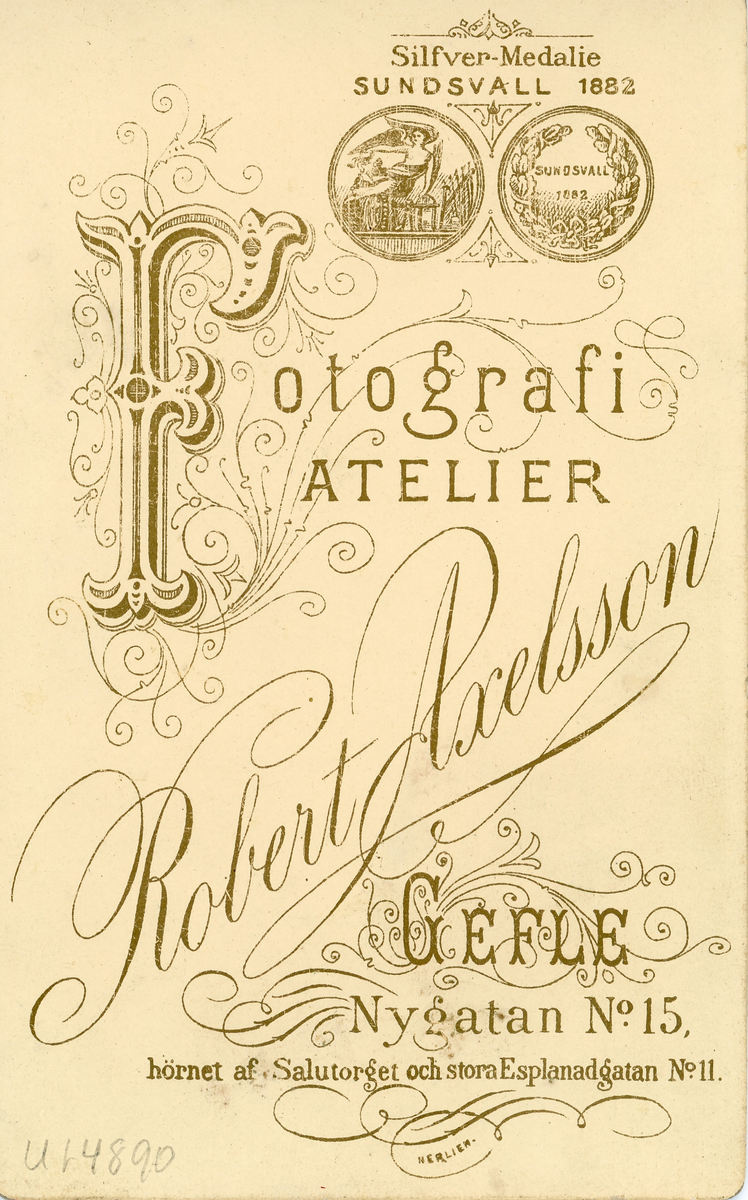 Silfver-Medalie
SUNDSVALL 1882
SUNDSVALL
1882
Fotografi
ATELIER
Robert Axelsson
GEFLE
Nygatan No 15,
hörnet af Salutorget och stora Esplanadgatan No 11.
NERLIEN.
UL4890